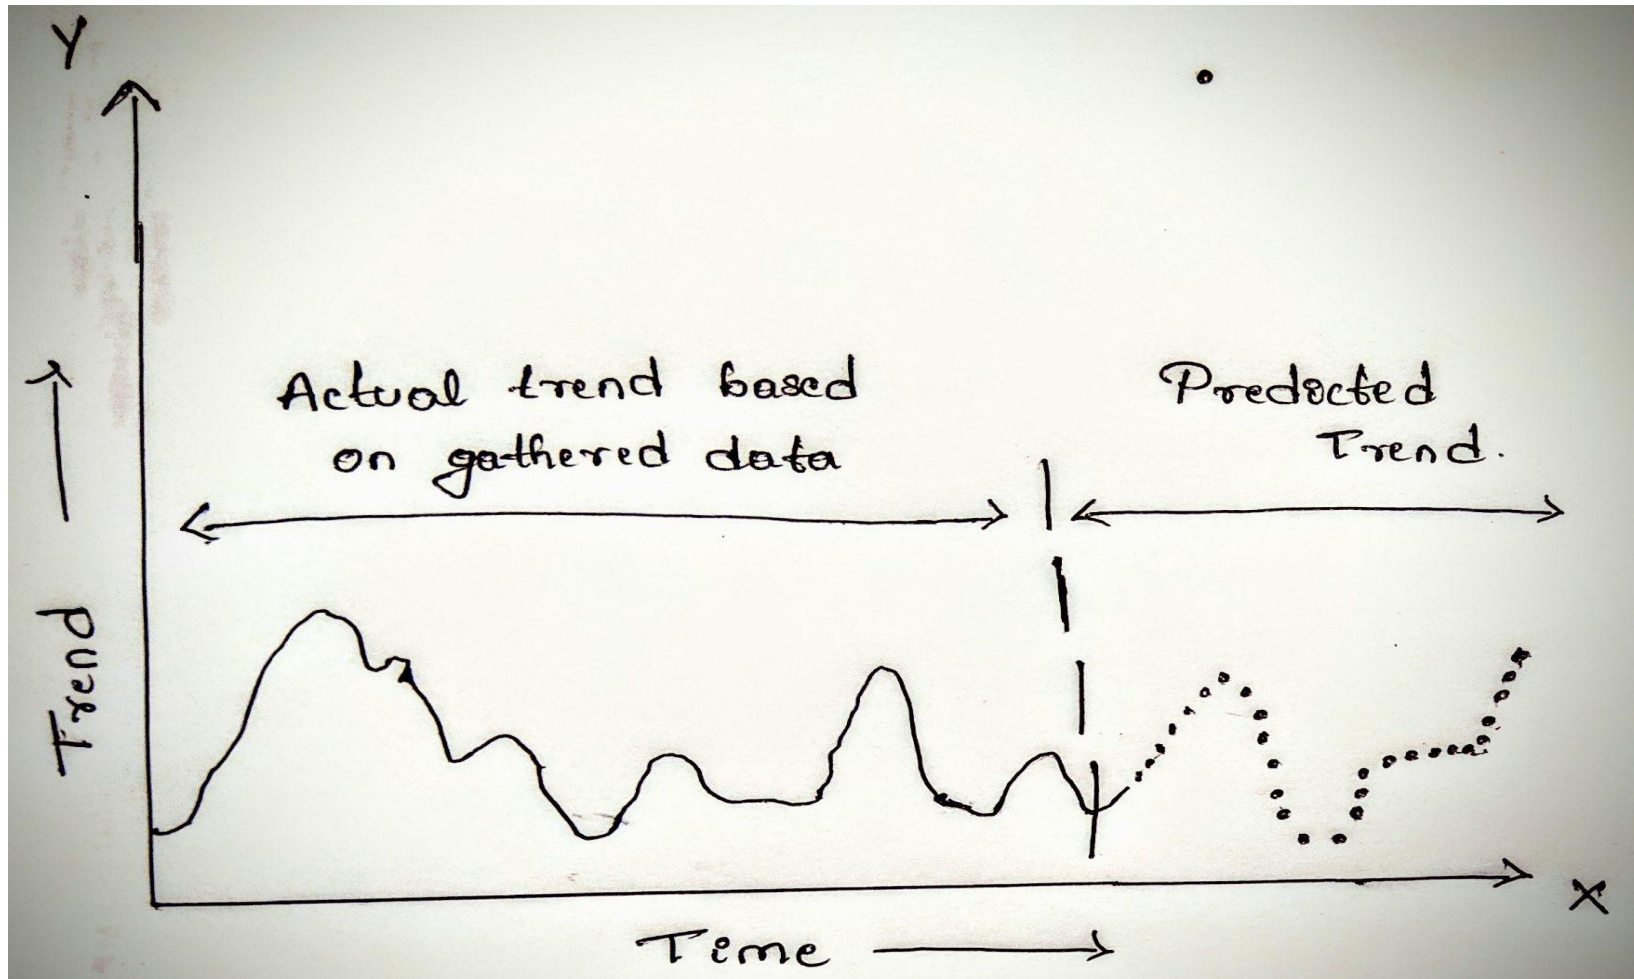 Y
Actual trend based
on gathered data
Predicted
Trend.
Trend
X
Time